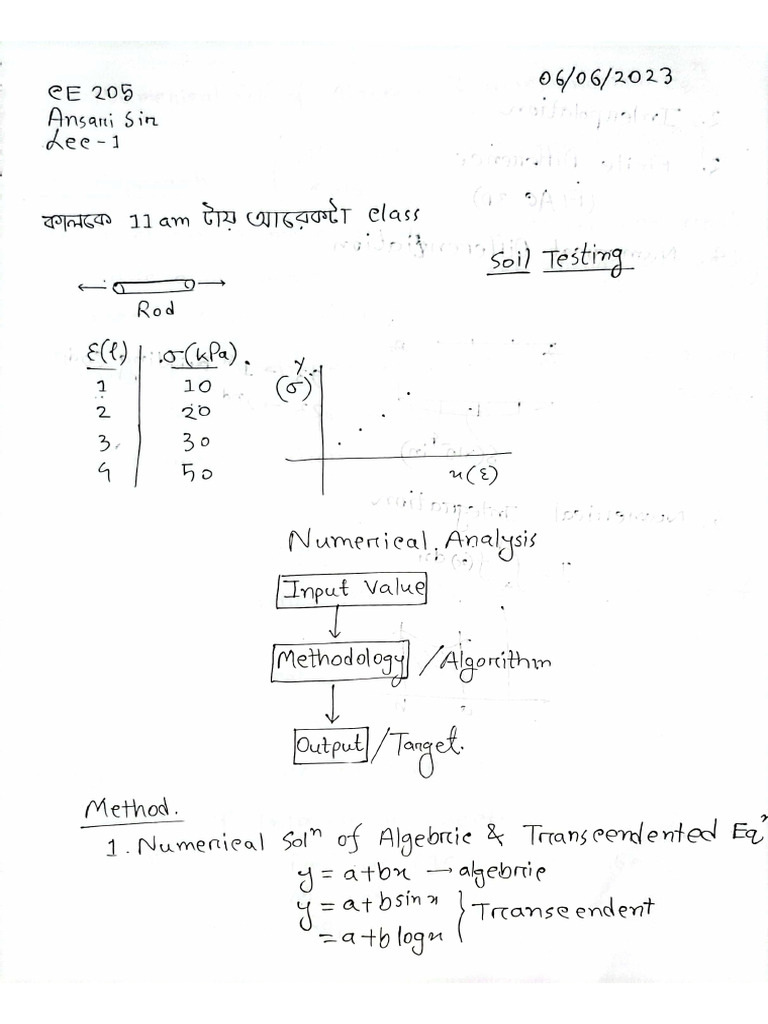 06/06/2023
CE 205
Ansari Sir
Lec-1
কালকে 11 am টায় আরেকটা class
Soil Testing
Rod
ε(l.) σ(kPa)
1 10
2 20
3 30
4 50
y
(σ)
x(ε)
Numerical Analysis
Input Value
Methodology / Algorithm
Output / Target.
Method.
1. Numerical Solⁿ of Algebric & Transcendented Eqⁿ
y = a+bx → algebric
y = a+b sin x } Transcendent
= a+b log x